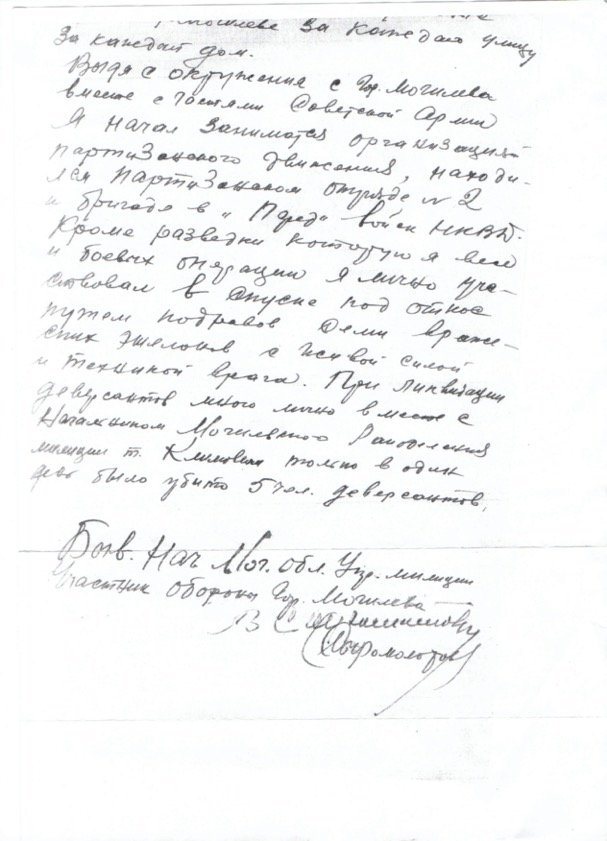 Могилеве за каждую улицу
За каждый дом.
Выйдя с окружения с Гор. Могилева
вместе с частями Советской Армии
Я начал заниматся организацией
партизанского движения, находи-
лся партизанском отряде № 2
и бригаде в войск НКВД.
Кроме разведки которую я вел
и боевых операции Я лично уча-
ствовал в спуске под откос
путем подравов семи враже-
ских эшелонов с живой силой
и техникой врага. При ликвидации
деверсантов много лично вместе с
Начальником Могилевского Райотделения
милиции т. только в один
день было убито 5 чел. деверсантов.
Бывв. Нач Мог. обл. Упр. милиции
Участник обороны Гор. Могилева